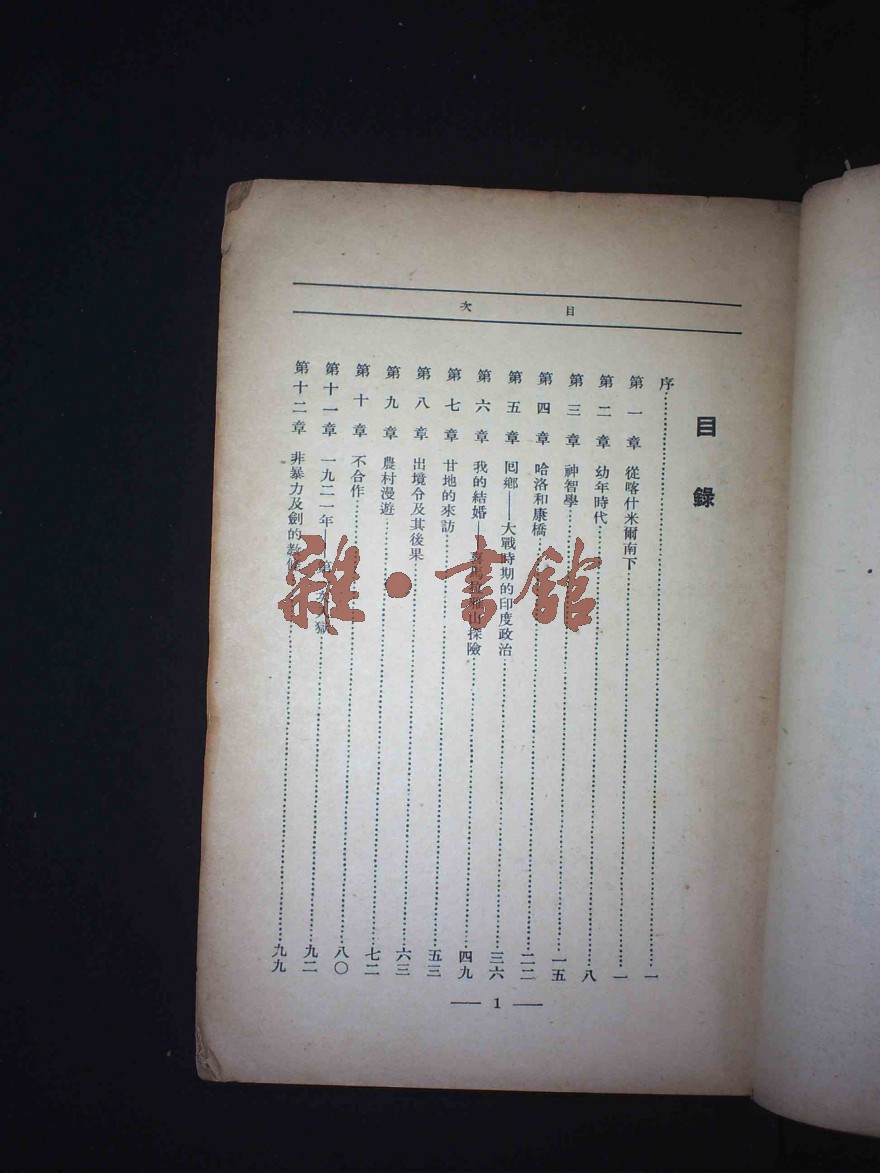 目次
目錄
序 一
第一章 從喀什米爾南下 一
第二章 幼年時代 八
第三章 神智學 一五
第四章 哈洛和康橋 二二
第五章 囘鄉——大戰時期的印度政治 三六
第六章 我的結婚——山探險 四九
第七章 甘地的來訪 五三
第八章 出境令及其後果 六三
第九章 農村漫遊 七二
第十章 不合作 八〇
第十一章 一九二一年——第 獄 九二
第十二章 非暴力及劍的教 九九
— 1 —
雜·書館